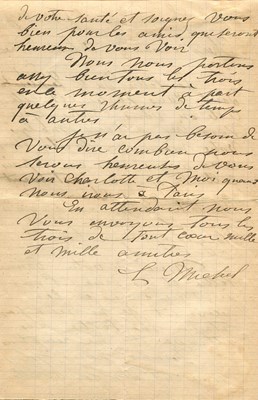 de votre santé et soignez vous
bien pour les amis, que seront
heureux de vous voir
Nous nous portons
assez bien tous les trois
en ce moment à part
quelques rhumes de temps
à autres
Je n'ai pas besoin de
vous dire combien nous
serons heureuses de vous
voir Charlotte et Moi quand
nous irons à Paris
En attendant nous
vous envoyons tous les
trois de tout cœur mille
et mille amitiés
L Michel